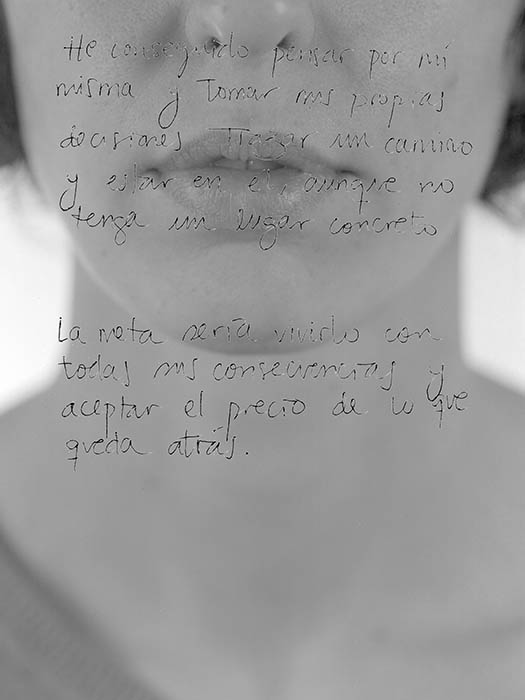 He conseguido pensar por mí
misma y Tomar mis propias
decisiones Trazar un camino
y estar en él, aunque no
tenga un lugar concreto
La meta sería vivirlo con
todas mis consecuencias y
aceptar el precio de lo que
queda atrás.